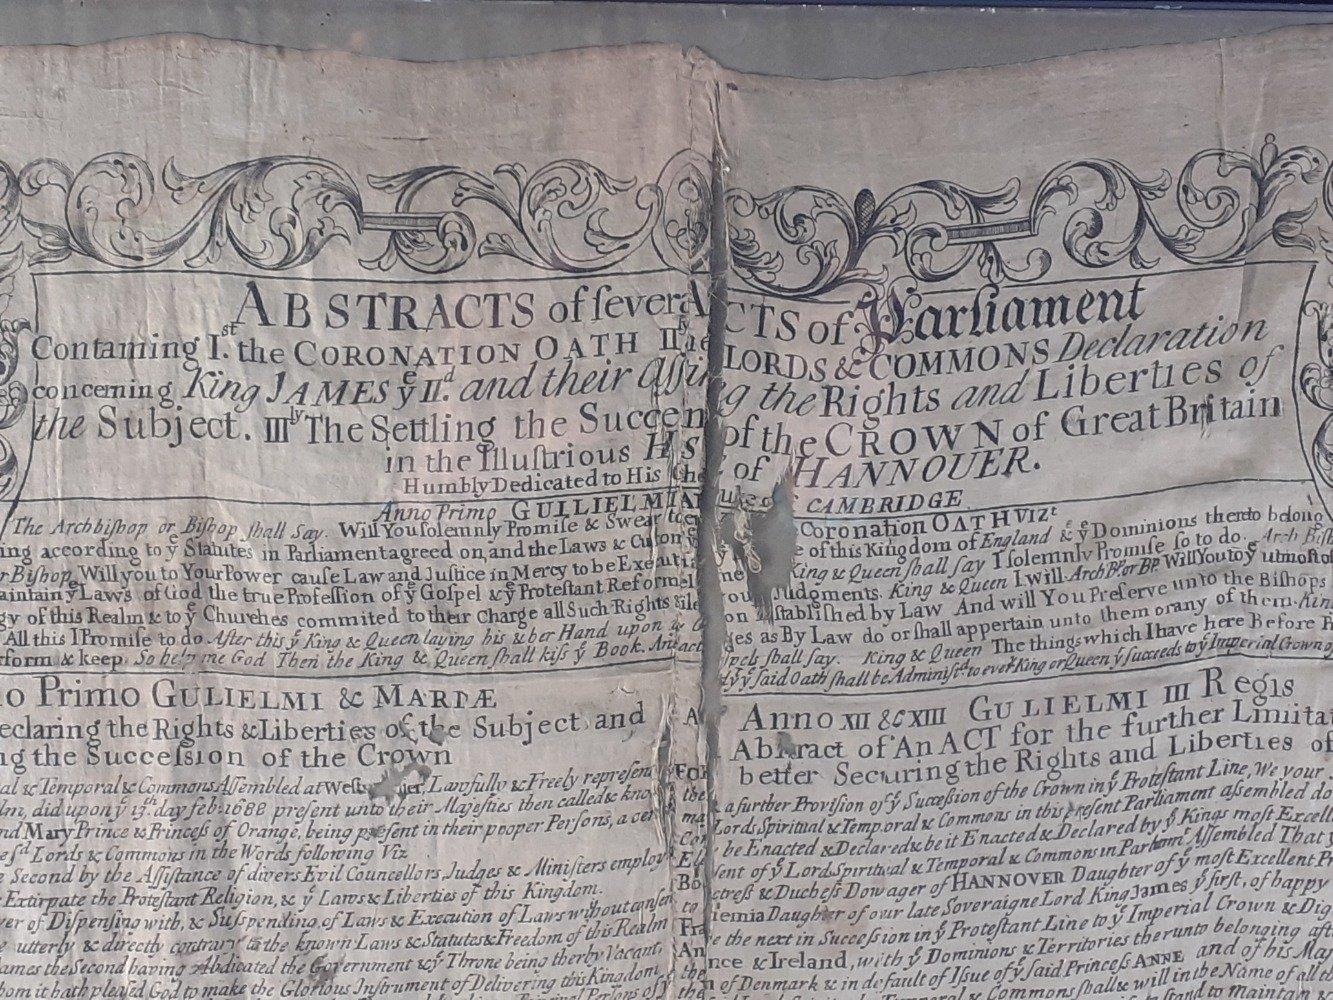 ABSTRACTS of severa CTS of Parliament
Containing I.st the CORONATION OATH II LORDS & COMMONS Declaration
concerning King JAMES ye IId. and their Assi g the Rights and Liberties of
the Subject. IIIly The Settling the Succe of the CROWN of Great Britain
in the Illustrious H of HANNOUER.
Humbly Dedicated to His CAMBRIDGE
Anno Primo GUILIELMI Coronation OATH VIZt
The Archbishop or Bishop shall Say. Will You solemnly Promise & Swear to
ing according to ye Statutes in Parliament agreed on, and the Laws & Custom
r Bishop Will you to Your Power cause Law and Justice in Mercy to be Executi
aintain ye Laws of God the true Profession of ye Gospel & ye Protestant Reforme
gy of this Realm & to ye Churches commited to their Charge all Such Rights &
All this I Promise to do After this ye King & Queen laying his & her Hand upon
rform & keep. So help me God Then the King & Queen shall kiss ye Book.
e of this Kingdom of England & ye Dominions thereto belong
King & Queen shall say I solemnly Promise so to do. Arch Bish
Judgments. King & Queen I will. Arch Bp. or BP. Will You to ye utmost of
stablished by Law And will You Preserve unto the Bishops
ges as By Law do or shall appertain unto them or any of them. Kin
pels shall say. King & Queen The things which I have here Before Pr
ye said Oath shall be Administd. to every King or Queen ye succeeds to ye Imperial Crown of
o Primo GULIELMI & MARIÆ
eclaring the Rights & Liberties of the Subject and
ng the Succession of the Crown
al & Temporal & Commons Assembled at Westminster, Lawfully & Freely represen
lm, did upon ye 13th. day feb. 1688 present unto their Majesties then called & kno
nd Mary Prince & Princess of Orange, being present in their pooper Persons, a cer
e sd Lords & Commons in the Words following Viz
e Second by the Assistance of divers Evil Councellors, Judges & Ministers employ
Extirpate the Protestant Religion, & ye Laws & Liberties of this Kingdom.
er of Dispensing with, & Suspending of Laws & Execution of Laws without consen
e utterly & directly contrary to the known Laws & Statutes & Freedom of this Realm
ames the Second having Abdicated the Government & ye Throne being therby Vacant,
hom it hath pleased God to make the Glorious Instrument of Delivering this Kingdom
Anno XII & XIII GULIELMI III Regis
Abstract of An ACT for the further Limita
better Securing the Rights and Liberties of
a further Provision of ye Succession of the Crown in ye Protestant Line, We your
Lords Spiritual & Temporal & Commons in this present Parliament assembled do
be Enacted & Declared & be it Enacted & Declared by ye Kings most Excell
sent of ye Lords Spiritual & Temporal & Commons in Parliamt Assembled That ye
ctress & Duchess Dowager of HANNOVER Daughter of ye most Excellent Pr
hemia Daughter of our late Soveraigne Lord King James ye first, of happy
e the next in Succession in ye Protestant Line to ye Imperial Crown & Dig
nce & Ireland, with ye Dominions & Territories therunto belonging aft
of Denmark & in default of Issue of ye said Princess ANNE and of his Ma
Temporal & Commons shall & will in the Name of all th